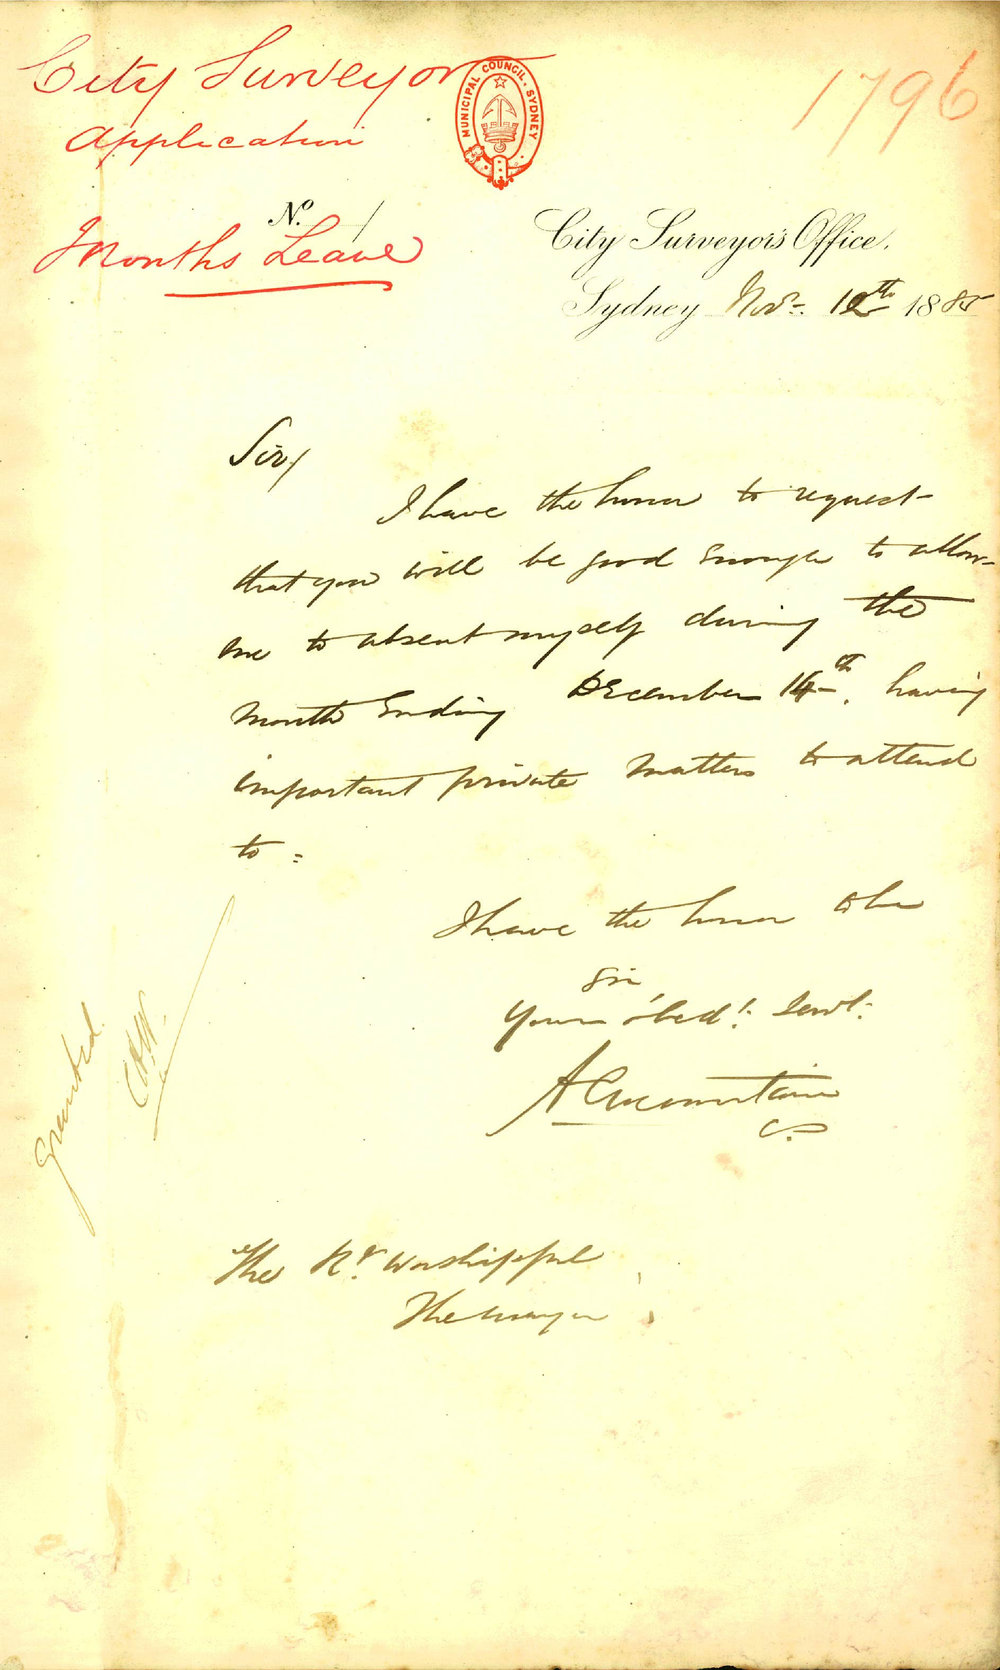 City Surveyor
Application
Months Leave
MUNICIPAL COUNCIL, SYDNEY
1796
No.
City Surveyor's Office,
Sydney Novr. 12th 1885
Sir/
I have the honor to request
that you will be good enough to allow
me to absent myself during the
month Ending December 14th. having
important private matters to attend
to =
I have the honor to be
Sir
Your obedt. Servt.
The Rt. Worshipful
The Mayor
Granted